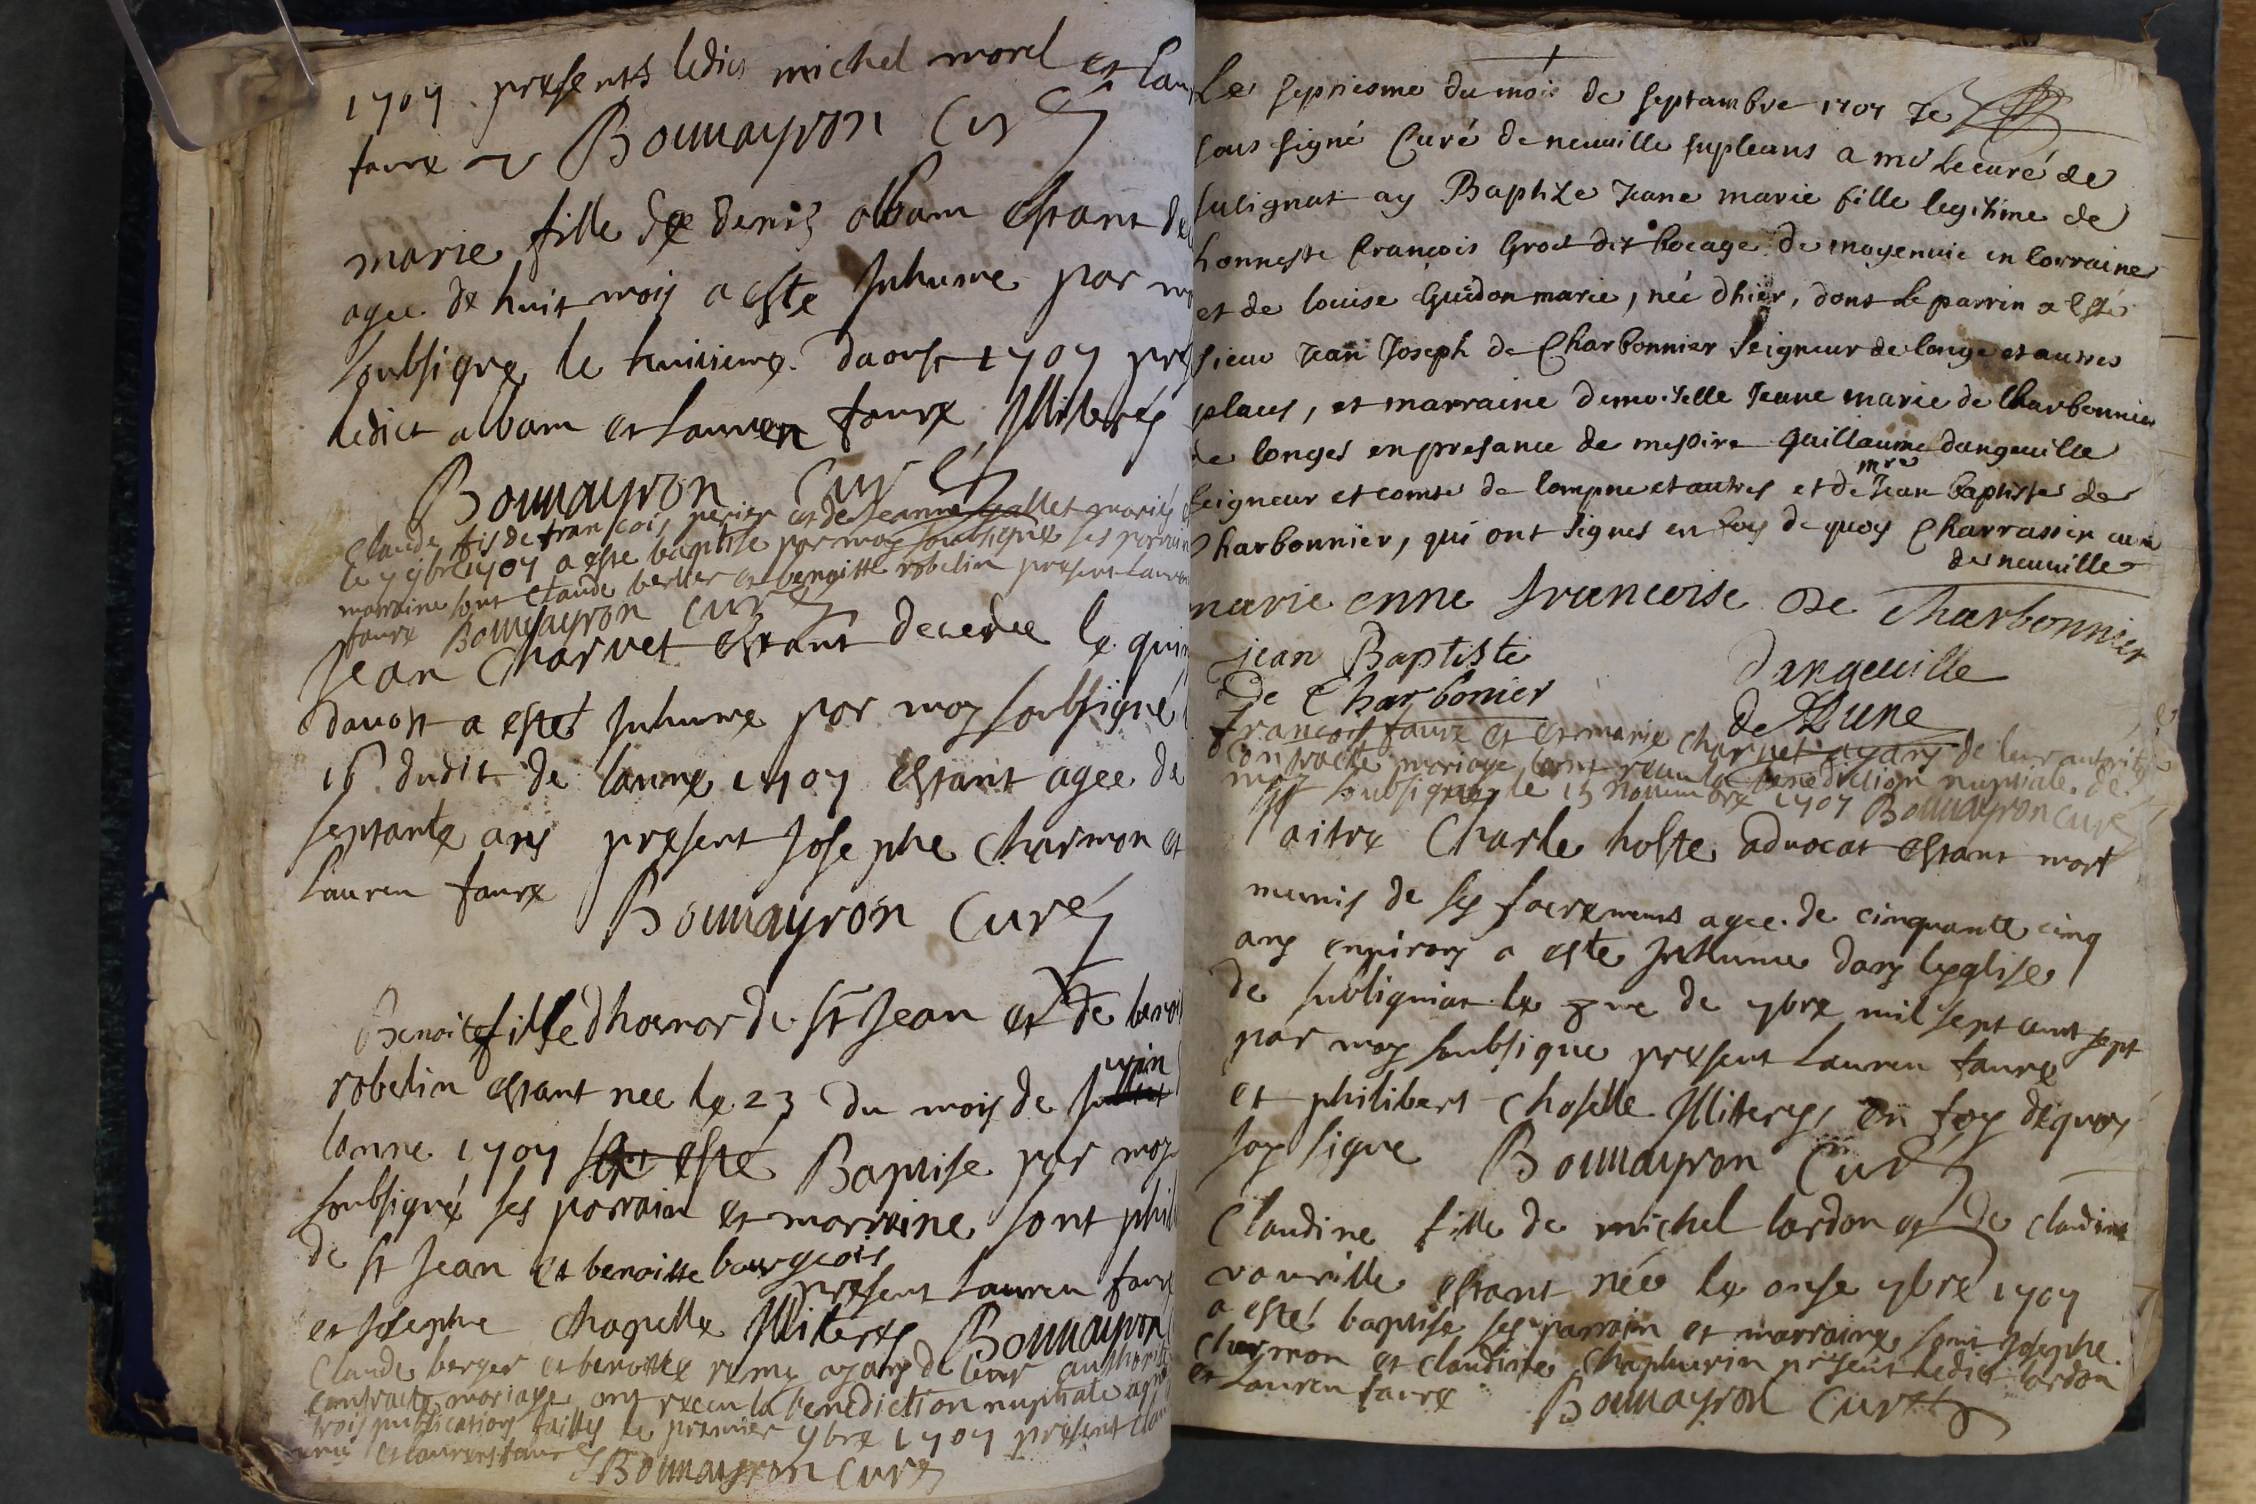 1707 presents ledict michel morel et lau
faure Boumayron Curé
marie fille de denis albam estant de
agee de huit mois a este Inhume par mo
soubsigne le huitieme daoust 1707 pre
ledict albam et lauren faure Illiterés
Boumayron Curé
Claude fis de francois perier et de Jeanne gallet mariés
le 7 9bre 1707 a este baptise par moy soubsigne ses parrain
marraine sont claude berlier et benoitte robelin present lauren
faure Boumayron Curé
Jean Charvet estant decedee le quin
davost a esté Inhume par moy soubsigné
16 dudit de lanne 1707 estant agee de
septante ans present Josephe Charmon et
lauren faure Boumayron Curé
Benoite fille dhonor de st Jean et de benoi
robelin estant nee le 23 du mois de Juin
lanne 1707 a esté Baptise par moy
soubsigné ses parrain et marraine sont phil
de st Jean et benoitte bourgeois
present lauren faure
et Josephe Chapelle Illiteres Boumayron
Claude berger et benoitte remy ayans de leur authorité
contracte mariage ont receu la benediction nuptiale apres
trois publications failles le premier 9bre 1707 present clau
et laurens faure Boumayron Curé
Le septiesme du mois de septambre 1707 Je
sous signé Curé de neuville supleans a mr le curé de
sulignat ay Baptize Jeane marie fille legitime de
honneste francois Grod dit bocage de moyenvic en lorraine
et de louise Guidon marie, née dhier, dont le parrin a esté
sieur Jean Joseph de Charbonnier seigneur de longe et autres
places, et marraine demoiselle Jeane marie de Charbonnier
de longes en presance de messire guillaume dangeville
seigneur et comte de lompne et autres et de mre Jean baptiste de
Charbonnier, qui ont signes en foy de quoy Charrassin curé
de neuville
marie enne francoise de Charbonnier
jean Baptiste dangeville
de Charbonier de Lune
francois faure et marie charvet ayans de leur autorité
contracte mariage ont receu la benediction nuptiale de
moy soubsigne le 15 novembre 1707 Boumayron Curé
Maitre Charle hoste advocat estant mort
munis de ses sacremens agee de cinquante cinq
ans environ a este Inhume dans leglise
de subligniat le me de 9bre mil sept cent sept
par moy soubsigne present lauren faure
et philibert Choselle Illiteres, en foy dequoy
Jay signe Boumayron Curé
Claudine fille de michel lardon et de claudine
estant née le onse 9bre 1707
a esté baptise ses parrain et marraine sont Josephe
charmon et claudine present ledict lardon
et lauren faure Boumayron Curé